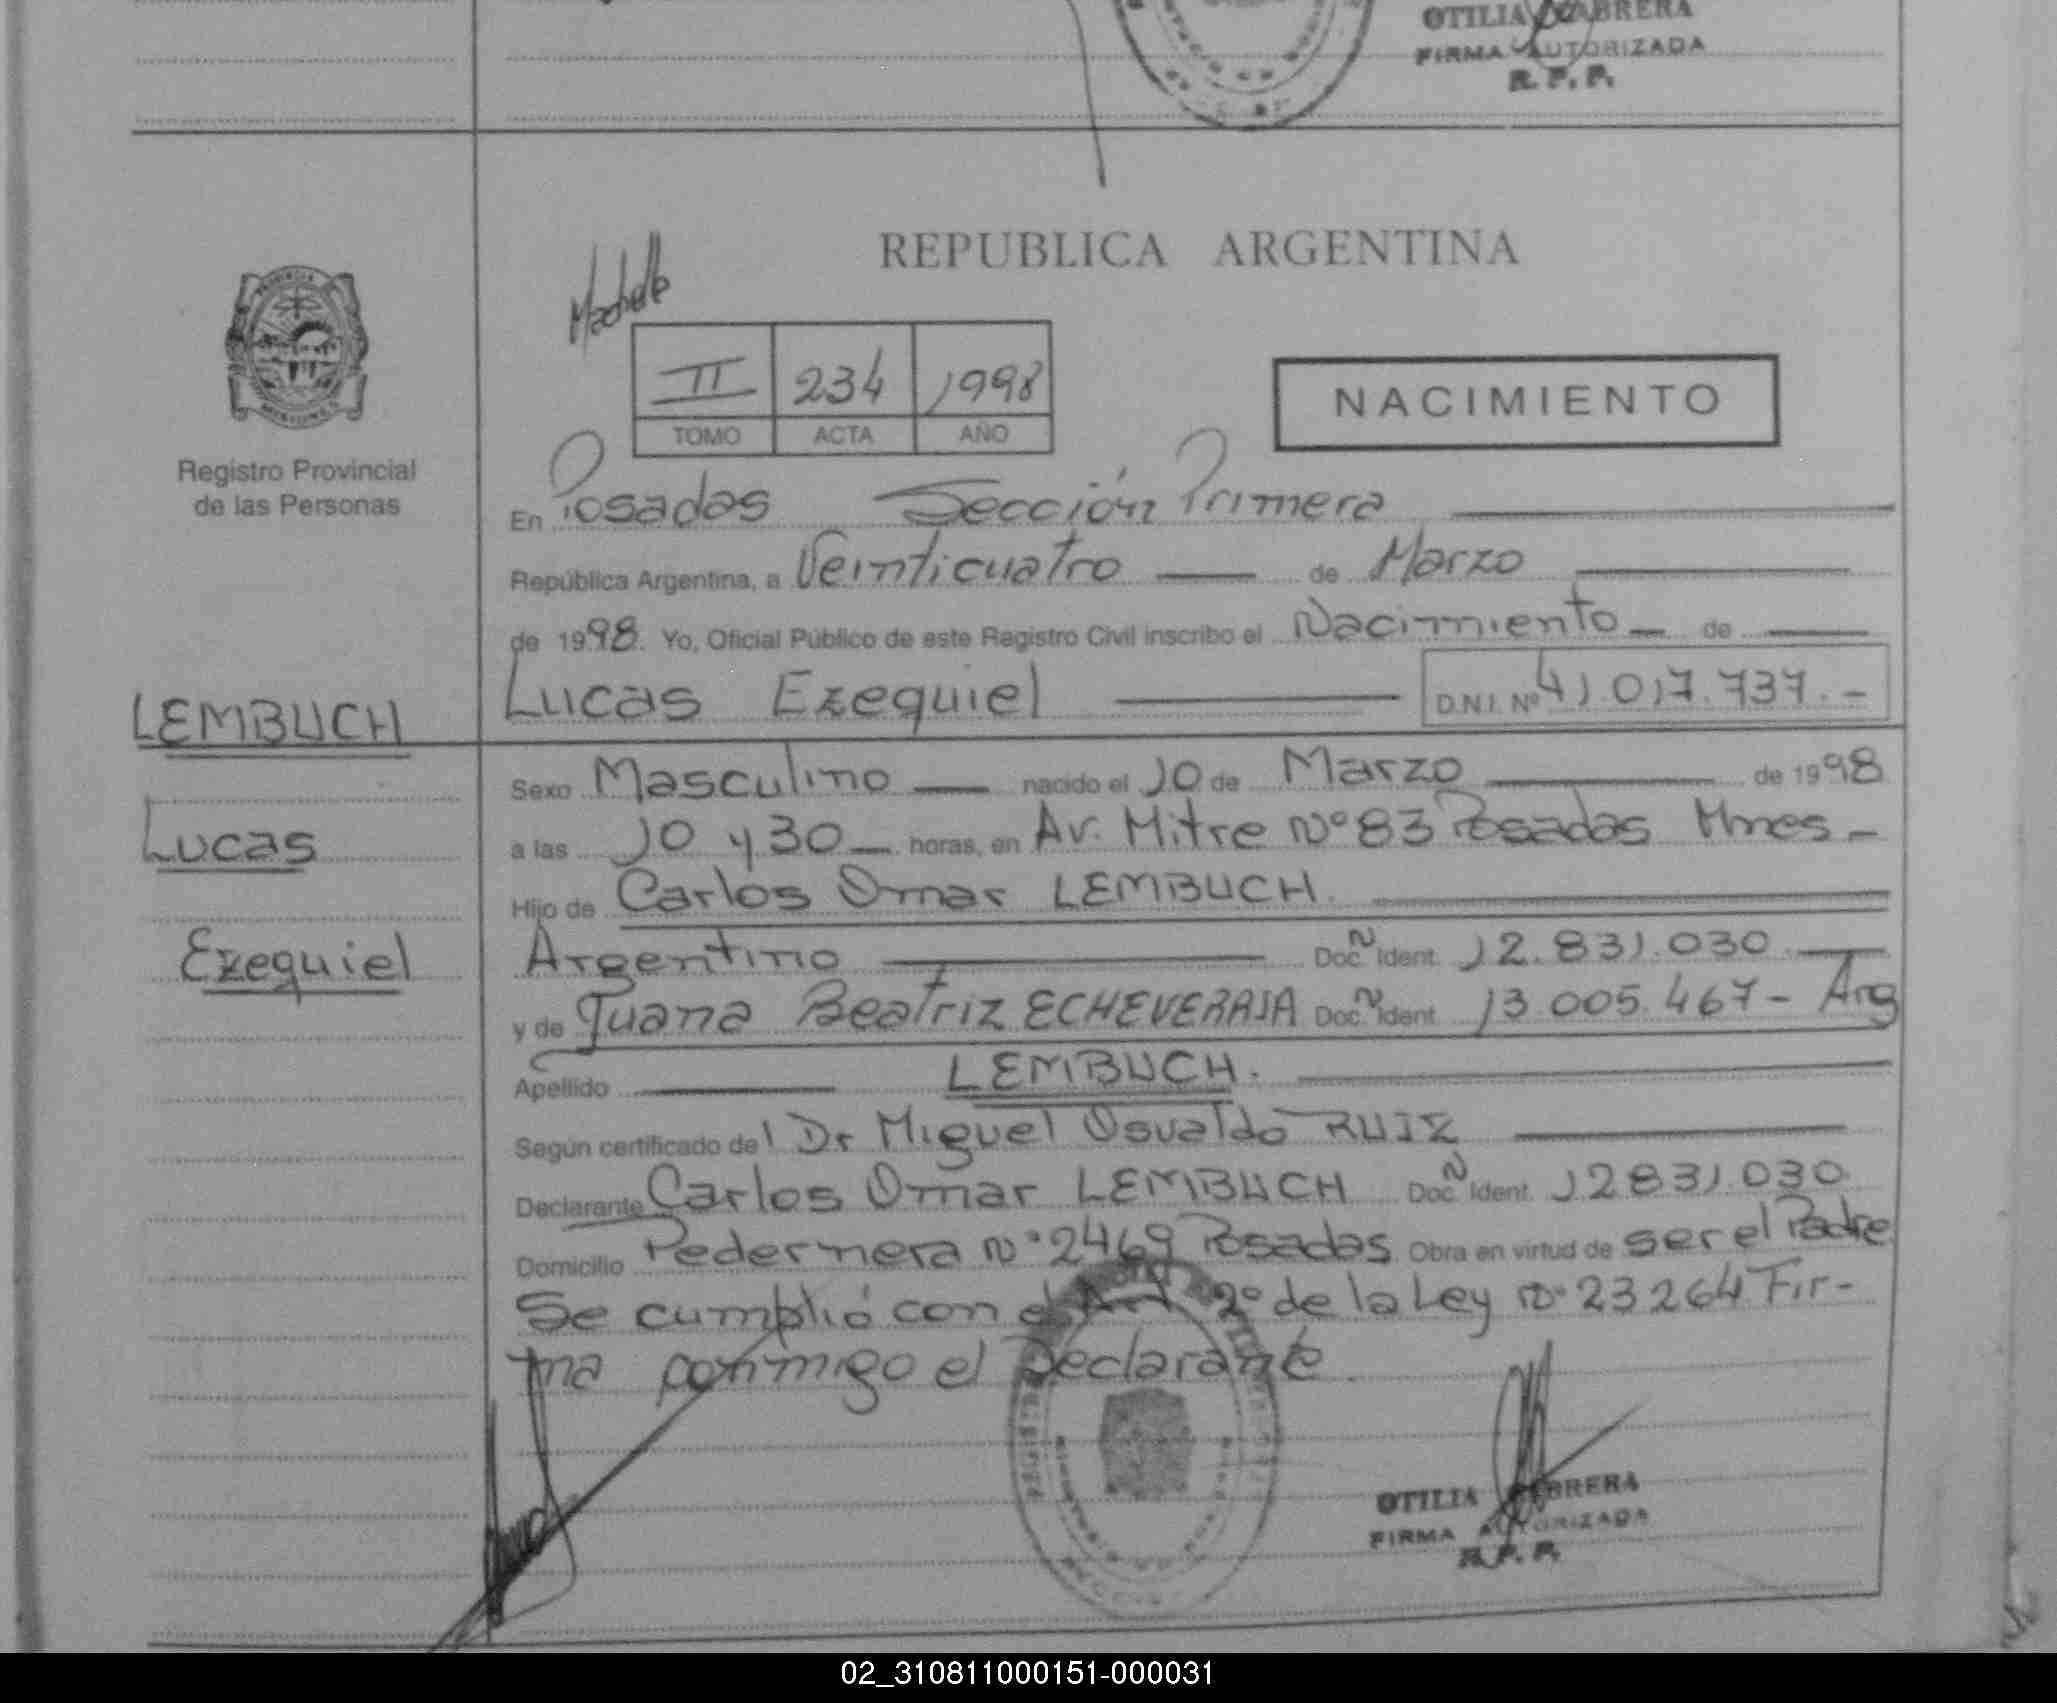 OTILIA CABRERA
FIRMA AUTORIZADA
R. P. P.
REPUBLICA ARGENTINA
II 234 1998
TOMO ACTA AÑO
NACIMIENTO
Registro Provincial
de las Personas
En Posadas Sección Primera
República Argentina, a Veinticuatro de Marzo
de 1998. Yo, Oficial Público de este Registro Civil inscribo el Nacimiento de
Lucas Ezequiel D.N.I. Nº 41.017.737.-
LEMBUCH
Lucas
Ezequiel
Sexo Masculino nacido el 10 de Marzo de 1998
a las 10 y 30 horas, en Av. Mitre Nº 83 Posadas Mnes -
Hijo de Carlos Omar LEMBUCH.
Argentino Doc. N Ident. 12.831.030
y de Juana Beatriz ECHEVERRIA Doc. N Ident. 13.005.467 - Arg
Apellido LEMBUCH.
Según certificado del Dr Miguel Osvaldo RUIZ
Declarante Carlos Omar LEMBUCH Doc. N Ident. 12831.030
Domicilio Pedernera Nº 2469 Posadas Obra en virtud de ser el Padre
Se cumplió con el Art 2º de la Ley Nº 23264 Fir-
ma conmigo el Declarante.
OTILIA CABRERA
FIRMA AUTORIZADA
R. P. P.
02_310811000151-000031